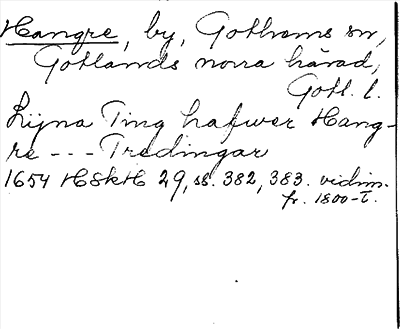 Hangre, by, Gothems sn,
Gotlands norra härad,
Gotl. l.
Lijna Ting hafwer Hang-
re --- Tredingar
1654 HSkH 29, ss. 382, 383. vidim.
fr. 1800-t.